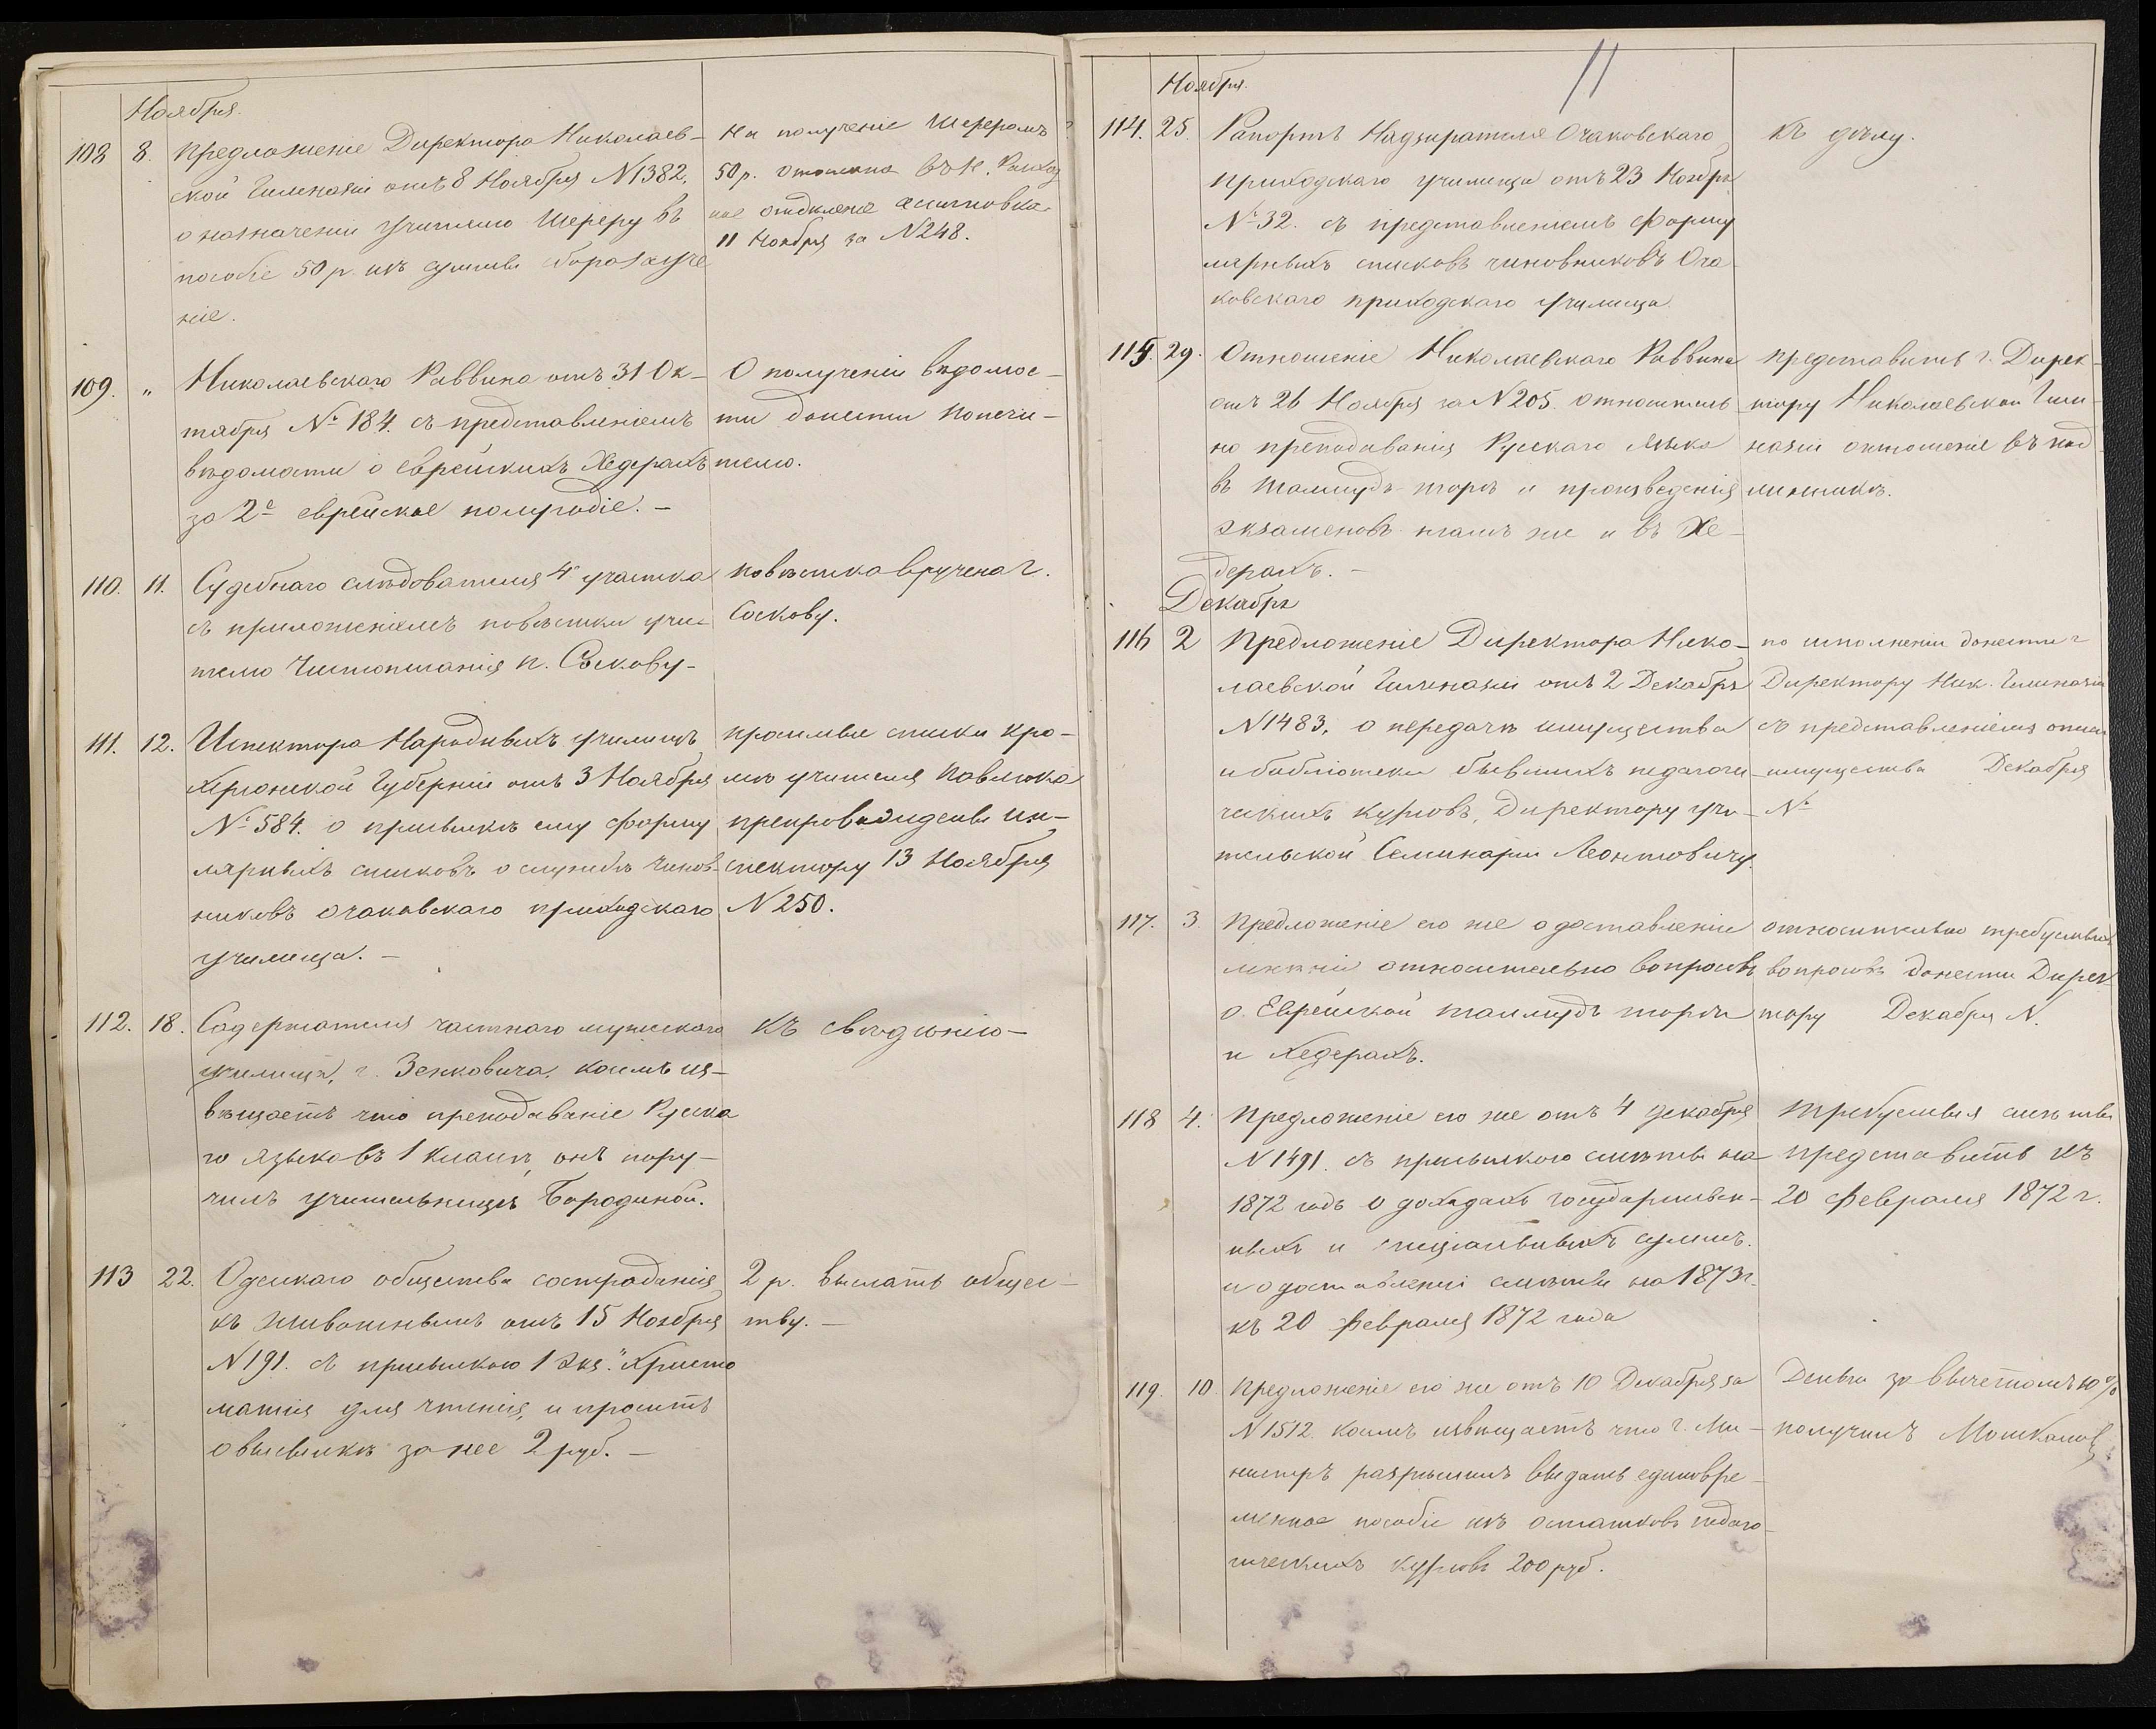 Ноября.
108 8. Предложеніе Директора Николаев-
ской Гимназіи отъ 8 Ноября N1382,
о назначеніи учителю Шереру въ
пособіе 50 р. изъ суммы сбора за уче
ніе.
На полученіе Шереромъ
50 р. въ К. Расход
ное отдѣленіе ассигновка
11 Ноября за N248.
109. „ Николаевскаго Раввина отъ 31 Ок-
тября № 184. съ представленіемъ
вѣдомости о еврейскихъ Хедерахъ
за 2е еврейское полугодіе. –
О полученіи вѣдомос-
ти донести попечи-
телю.
110. 11. Судебнаго слѣдователя 4 участка
съ приложеніемъ повѣстки учи-
телю Чистописанія п. Соскову-
Повѣстка вручена г.
Соскову.
111. 12. Инспектора Народныхъ училищъ
Херсонской Губерніи отъ 3 Ноября
№ 584. о присылкѣ ему форму
лярныхъ списковъ о службѣ чинов-
никовъ очаковскаго приходскаго
училища. –
просимые списки кро-
мѣ учителя Павлюка
препровождены Ин-
спектору 13 Ноября
N250.
112. 18. Содержателя частнаго мужскаго
училища, г. Зенковича, коимъ из-
вѣщаетъ что преподаваніе Русска
го языка въ 1 классѣ, онъ пору-
чилъ учительницѣ Бородиной.
къ свѣденію-
113 22. Одесскаго общества состраданія
къ животнымъ отъ 15 Ноября
N191. съ присылкою 1 экз. „Христо
матія для чтенія, и проситъ
о высылкѣ за нее 2 руб. –
2 р. выслать общес-
тву. –
11
Ноября.
114. 25. Рапортъ Надзирателя Очаковскаго
приходскаго училища отъ 23 Ноября
№ 32. съ представленіемъ форму
лярныхъ списковъ чиновниковъ Оча-
ковскаго приходскаго училища.
къ дѣлу.
115. 29. Отношеніе Николаевскаго Раввина
отъ 26 Ноября за N205. относитель
но преподаванія Русскаго языка
въ Талмудъ-торѣ и произведенія
экзаменовъ тамъ же и въ Хе-
дерахъ. –
представить г. Дирек-
тору Николаевской Гим-
назіи отношеніе въ под
линникѣ.
Декабрь
116 2 Предложеніе Директора Нико-
лаевской Гимназіи отъ 2 Декабря
N1483, о передачѣ имущества
и библіотеки бывшихъ педагоги
ческихъ курсовъ, Директору учи-
тельской Семинаріи Леонтовичу.
по исполненіи донести г
Директору Ник. Гимназіи
съ представленіемъ описи
имущества Декабря
№
117. 3 Предложеніе его же о доставленіи
мнѣній относительно вопросовъ
о Еврейской талмудъ торѣ
и Хедерахъ.
относительно требуемыхъ
вопросовъ донести Дирек-
тору Декабря N.
118 4. Предложеніе его же отъ 4 декабря
N1491. съ присылкою смѣты на
1872 годъ о доходахъ государствен-
ныхъ и спеціальныхъ суммъ.
и о доставленіи смѣты на 1873 г.
къ 20 февраля 1872 года
Требуемыя смѣты
представить къ
20 февраля 1872 г.
119. 10. Предложеніе его же отъ 10 Декабря за
N1512. коимъ извѣщаетъ что г. Ми-
нистръ разрѣшилъ выдать единовре-
менное пособіе изъ остатковъ педаго-
гическихъ курсовъ 200 руб.
Деньги за вычетомъ 10%
получилъ